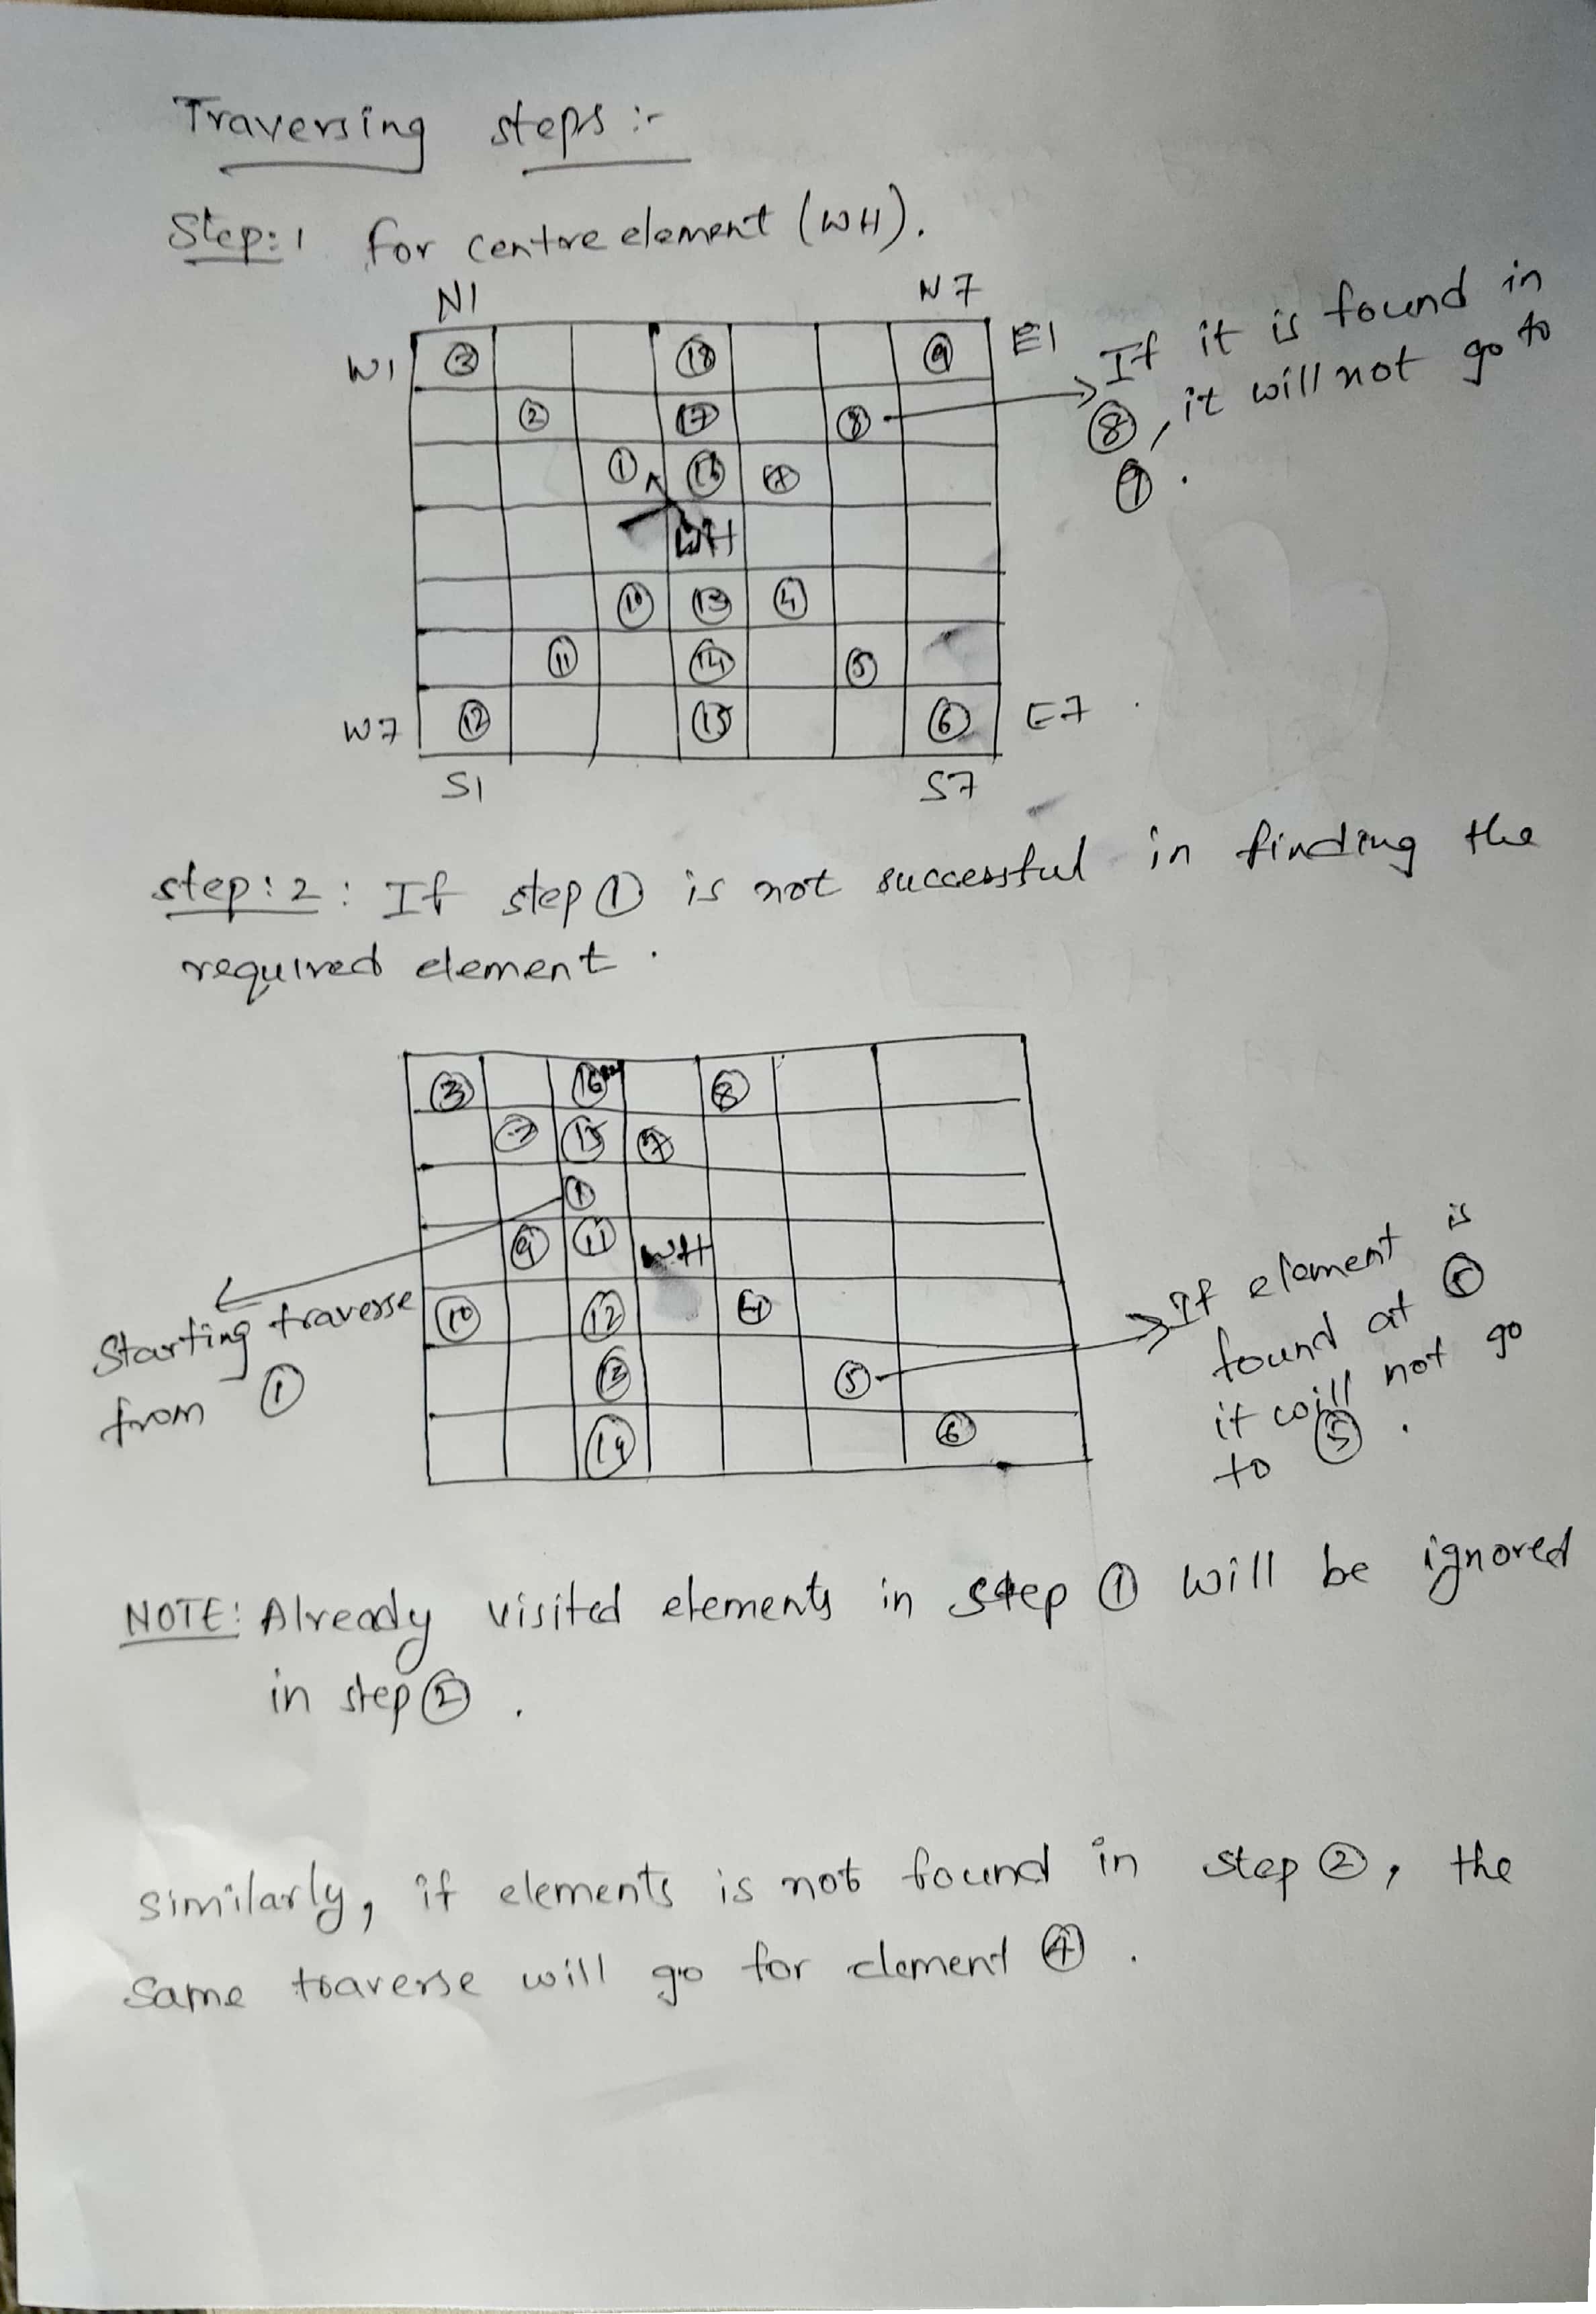 Traversing steps :-
Step:1 for centre element (WH).
N1 N7
W1 ③ ⑱ ⑨ E1
② ⑰ ⑧
① ⑯ ⑦
WH
⑩ ⑬ ④
⑪ ⑭ ⑤
W7 ⑫ ⑮ ⑥ E7
S1 S7
If it is found in
⑧, it will not go to
⑨.
step:2: If step ① is not successful in finding the
required element.
③ ⑯ ⑧
② ⑮ ⑦
①
⑨ ⑪ WH
⑩ ⑫ ④
⑬ ⑤
⑭ ⑥
Starting traverse
from ①
If element is
found at
it will not go
to ⑤.
NOTE: Already visited elements in step ① will be ignored
in step ②.
similarly, if elements is not found in step ②, the
same traverse will go for element ④.